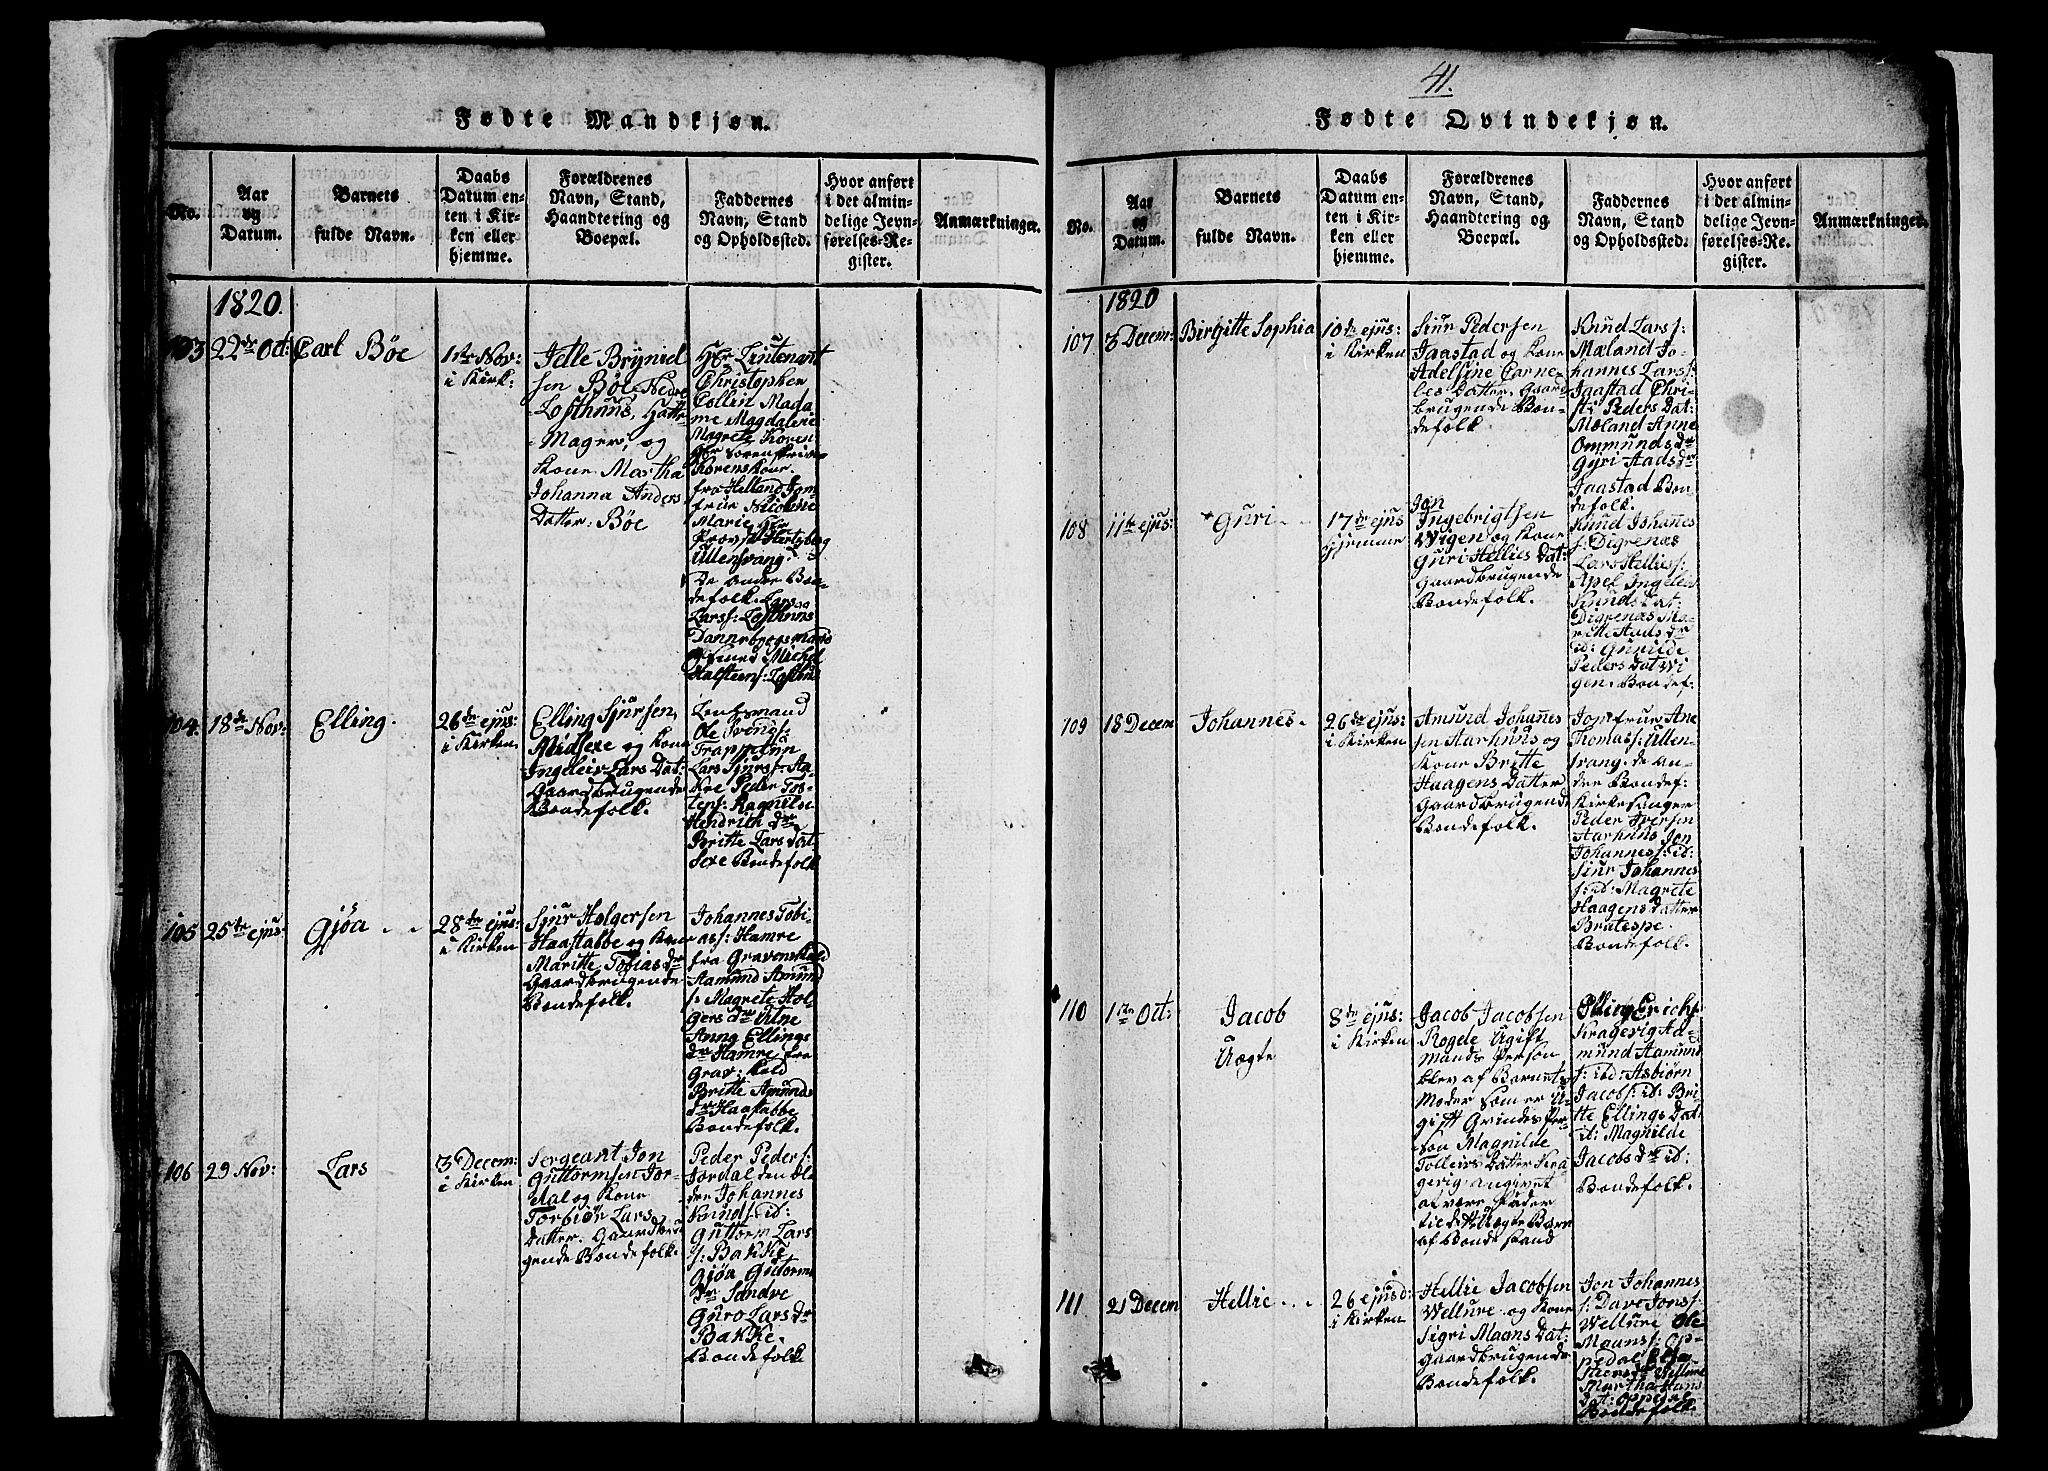 Fødte Mandkjøn.
No.
Aar
og
Datum.
Barnets
fulde Navn.
Daabs
Datum en-
ten i Kir-
ken eller
hjemme.
Forældrenes
Navn, Stand,
Haandtering og
Boepæl.
Faddernes
Navn, Stand
og Opholdssted.
Hvor anført
i det almin-
delige Jevn-
førelses-Re-
gister.
Anmærkninger.
1820.
103
22de Oct:
Carl Böe
1ste Nov:
i Kirk:
Jelle Brynild
sen Böe Nedre
Lofthuus, Hatte
Mager, og
Kone Martha
Johanna Anders
Datter: Böe
Hr Lieutenant
Christopher
Collin Mada
me Magdalene
Magrete Koren
Hr Sorenskriver
Korens Kone
fra Helland Jom
frue Nicoline
Marie Hr
Provst Hertzberg
Ullensvang.
De andre Bon-
defolk. Lars
Larss: Lofthuus
Dannebrogsmand
Michel
Halsteens: Lofthuus
104.
18de Nov:
Elling.
26de ejus:
i Kirken
Elling Sjursen
Midsexe og Kone
Ingeleiv Lars Dat:
Gaardbrugende
Bondefolk.
Lentsmand
Ole Ivers:
Trapmann
Lars Sjurss: Aa-
kre Peder Tos-
tens: Ragnilde
Hendrich dr
Britte Lars dat
Sexe Bondefolk
105
25te ejus:
Gjöa
28de ejus:
i Kirken
Sjur Holgersen
Haastabbe og Kone
Maritte Tobias dr
Gaardbrugende
Bondefolk.
Johannes Tobi-
ass: Hamre
fra Gravens
Aamund Amund
s: Magrete Hol-
gers dr Utne
Anna Ellings
dr Hamre fra
Grav: Kald
Britte Amunds
dr Haastabbe
Bondefolk.
106
29 Nov:
Lars
3 Decem:
i Kirken
Sergeant Jon
Guttormsen Jor-
dal og Kone
Torbiör Lars
Datter. Gaardbru
gende Bondefolk.
Peder Peders:
Jordal den Æl
dre Johannes
Knuds: id:
Guttorm Lars
s: Bakke
Gjöa Guttorms
dr Sandve
Guro Lars dr
Bakke.
Bondefolk.
41.
Fødte Qvindekjøn.
No.
Aar
og
Datum.
Barnets
fulde Navn.
Daabs
Datum en-
ten i Kir-
ken eller
hjemme.
Forældrenes
Navn, Stand,
Haandtering og
Boepæl.
Faddernes
Navn, Stand
og Opholdssted.
Hvor anført
i det almin-
delige Jevn-
førelses-Re-
gister.
Anmærkninger.
1820
107
3 Decem:
Birgitte Sophia
10de ejus:
i Kirken
Siur Pedersen
Jaastad og Kone
Adelsine Corne-
les Datter, Gaard
brugende Bon-
defolk
Knud Larss:
Mæland Jo-
hannes Larss:
Jaastad Chri-
sti Peders Dat:
Mæland Anne
Ommunds dr
Gyri Aads dr
Jaastad Bon
defolk.
108
11te ejus:
Guri
17de ejus
Hjemme
Jon
Ingebrigtsen
Wigen og Kone
Guri Hellies Dat:
Gaardbrugende
Bondefolk.
Knud Johannes
s: Digrenæs
Lars Hellies:
Apel Ingeleiv
Knuds Dat:
Digrenæs Ma-
ritte Aads dr
id: Gurilde
Peders Dat Wi
gen. Bondef:
109
18 Decem
Johannes
26de ejus:
i Kirken
Amund Johannes
sen Aarhuus og
Kone Britte
Haagens Datter
Gaardbrugende
Bondefolk.
Jomfrue Ane
Thomass: Ullen-
svang. de an-
dre Bondef:
Kirkesanger
Peder Iversen
Aarhuus Jon
Johannes: id:
Siur Johannes
s: id: Magrete
Haagens Datter
Bratespe.
Bondefolk.
110
1ste Oct:
Jacob
Uægte
8de ejus:
i Kirken
Jacob Jacobsen
Rogde Ugift
Mands Person
blev af Barnets
Moder som er U-
gift Qvindes Per-
son Magnilde
Tolleivs Datter Kra-
gerig angivet
at være Fader
til dette Uægte Barn
af Bonde Stand
Elling Erichs:
Kragerig Aa-
mund Aamund
s: id: Asbiörn
Jacobs: id: Bri-
tte Ellings Dat
id: Magnilde
Jacobs dr id:
Bondefolk.
111
21 Decem
Hellie
26 ejusd:
i Kirken
Hellie Jacobsen
Wellure og Kone
Sigri Maans Dat:
Gaardbrugende
Bondefolk.
Jon Johannes
s: Dave Jons:
Wellure Ole
Maans: Op-
pedal
Wellure
Martha Hans
dat: Oppedal
Bondefolk.